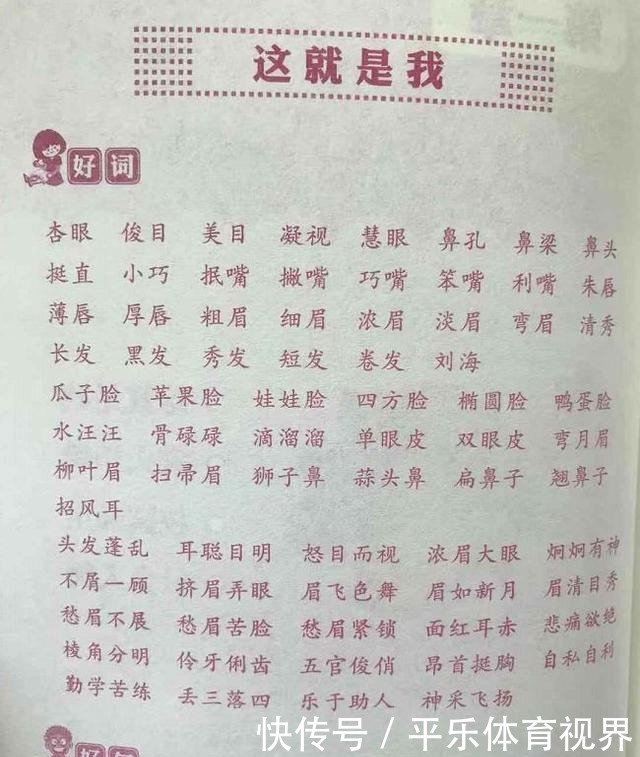 这就是我
好词
杏眼 俊目 美目 凝视 慧眼 鼻孔 鼻梁 鼻头
挺直 小巧 抿嘴 撇嘴 巧嘴 笨嘴 利嘴 朱唇
薄唇 厚唇 粗眉 细眉 浓眉 淡眉 弯眉 清秀
长发 黑发 秀发 短发 卷发 刘海
瓜子脸 苹果脸 娃娃脸 四方脸 椭圆脸 鸭蛋脸
水汪汪 骨碌碌 滴溜溜 单眼皮 双眼皮 弯月眉
柳叶眉 扫帚眉 狮子鼻 蒜头鼻 扁鼻子 翘鼻子
招风耳
头发蓬乱 耳聪目明 怒目而视 浓眉大眼 炯炯有神
不屑一顾 挤眉弄眼 眉飞色舞 眉如新月 眉清目秀
愁眉不展 愁眉苦脸 愁眉紧锁 面红耳赤 悲痛欲绝
棱角分明 伶牙俐齿 五官俊俏 昂首挺胸 自私自利
勤学苦练 丢三落四 乐于助人 神采飞扬
快传号 / 平乐体育视界